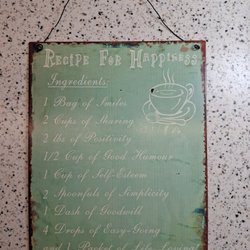 Recipe For Happiness
Ingredients:
1 Bag of Smiles
2 Cups of Sharing
2 lbs of Positivity
1/2 Cup of Good Humour
1 Cup of Self-Esteem
2 Spoonfuls of Simplicity
1 Dash of Goodwill
4 Drops of Easy-Going
and 1 Packet of Life Loving